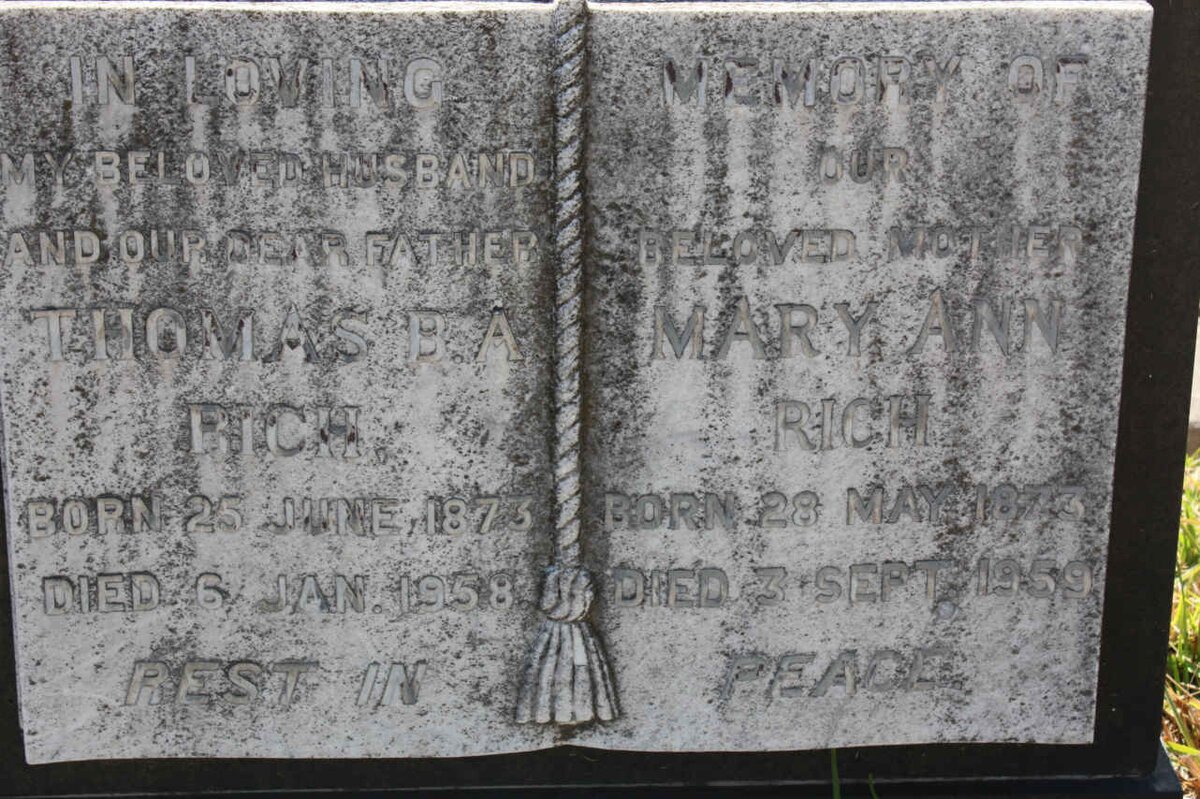 IN LOVING
MY BELOVED HUSBAND
AND OUR DEAR FATHER
THOMAS B. A
RICH.
BORN 25 JUNE, 1873
DIED 6 JAN. 1958
REST IN
MEMORY OF
OUR
BELOVED MOTHER
MARY ANN
RICH
BORN 28 MAY 1873
DIED 3 SEPT. 1959
PEACE.